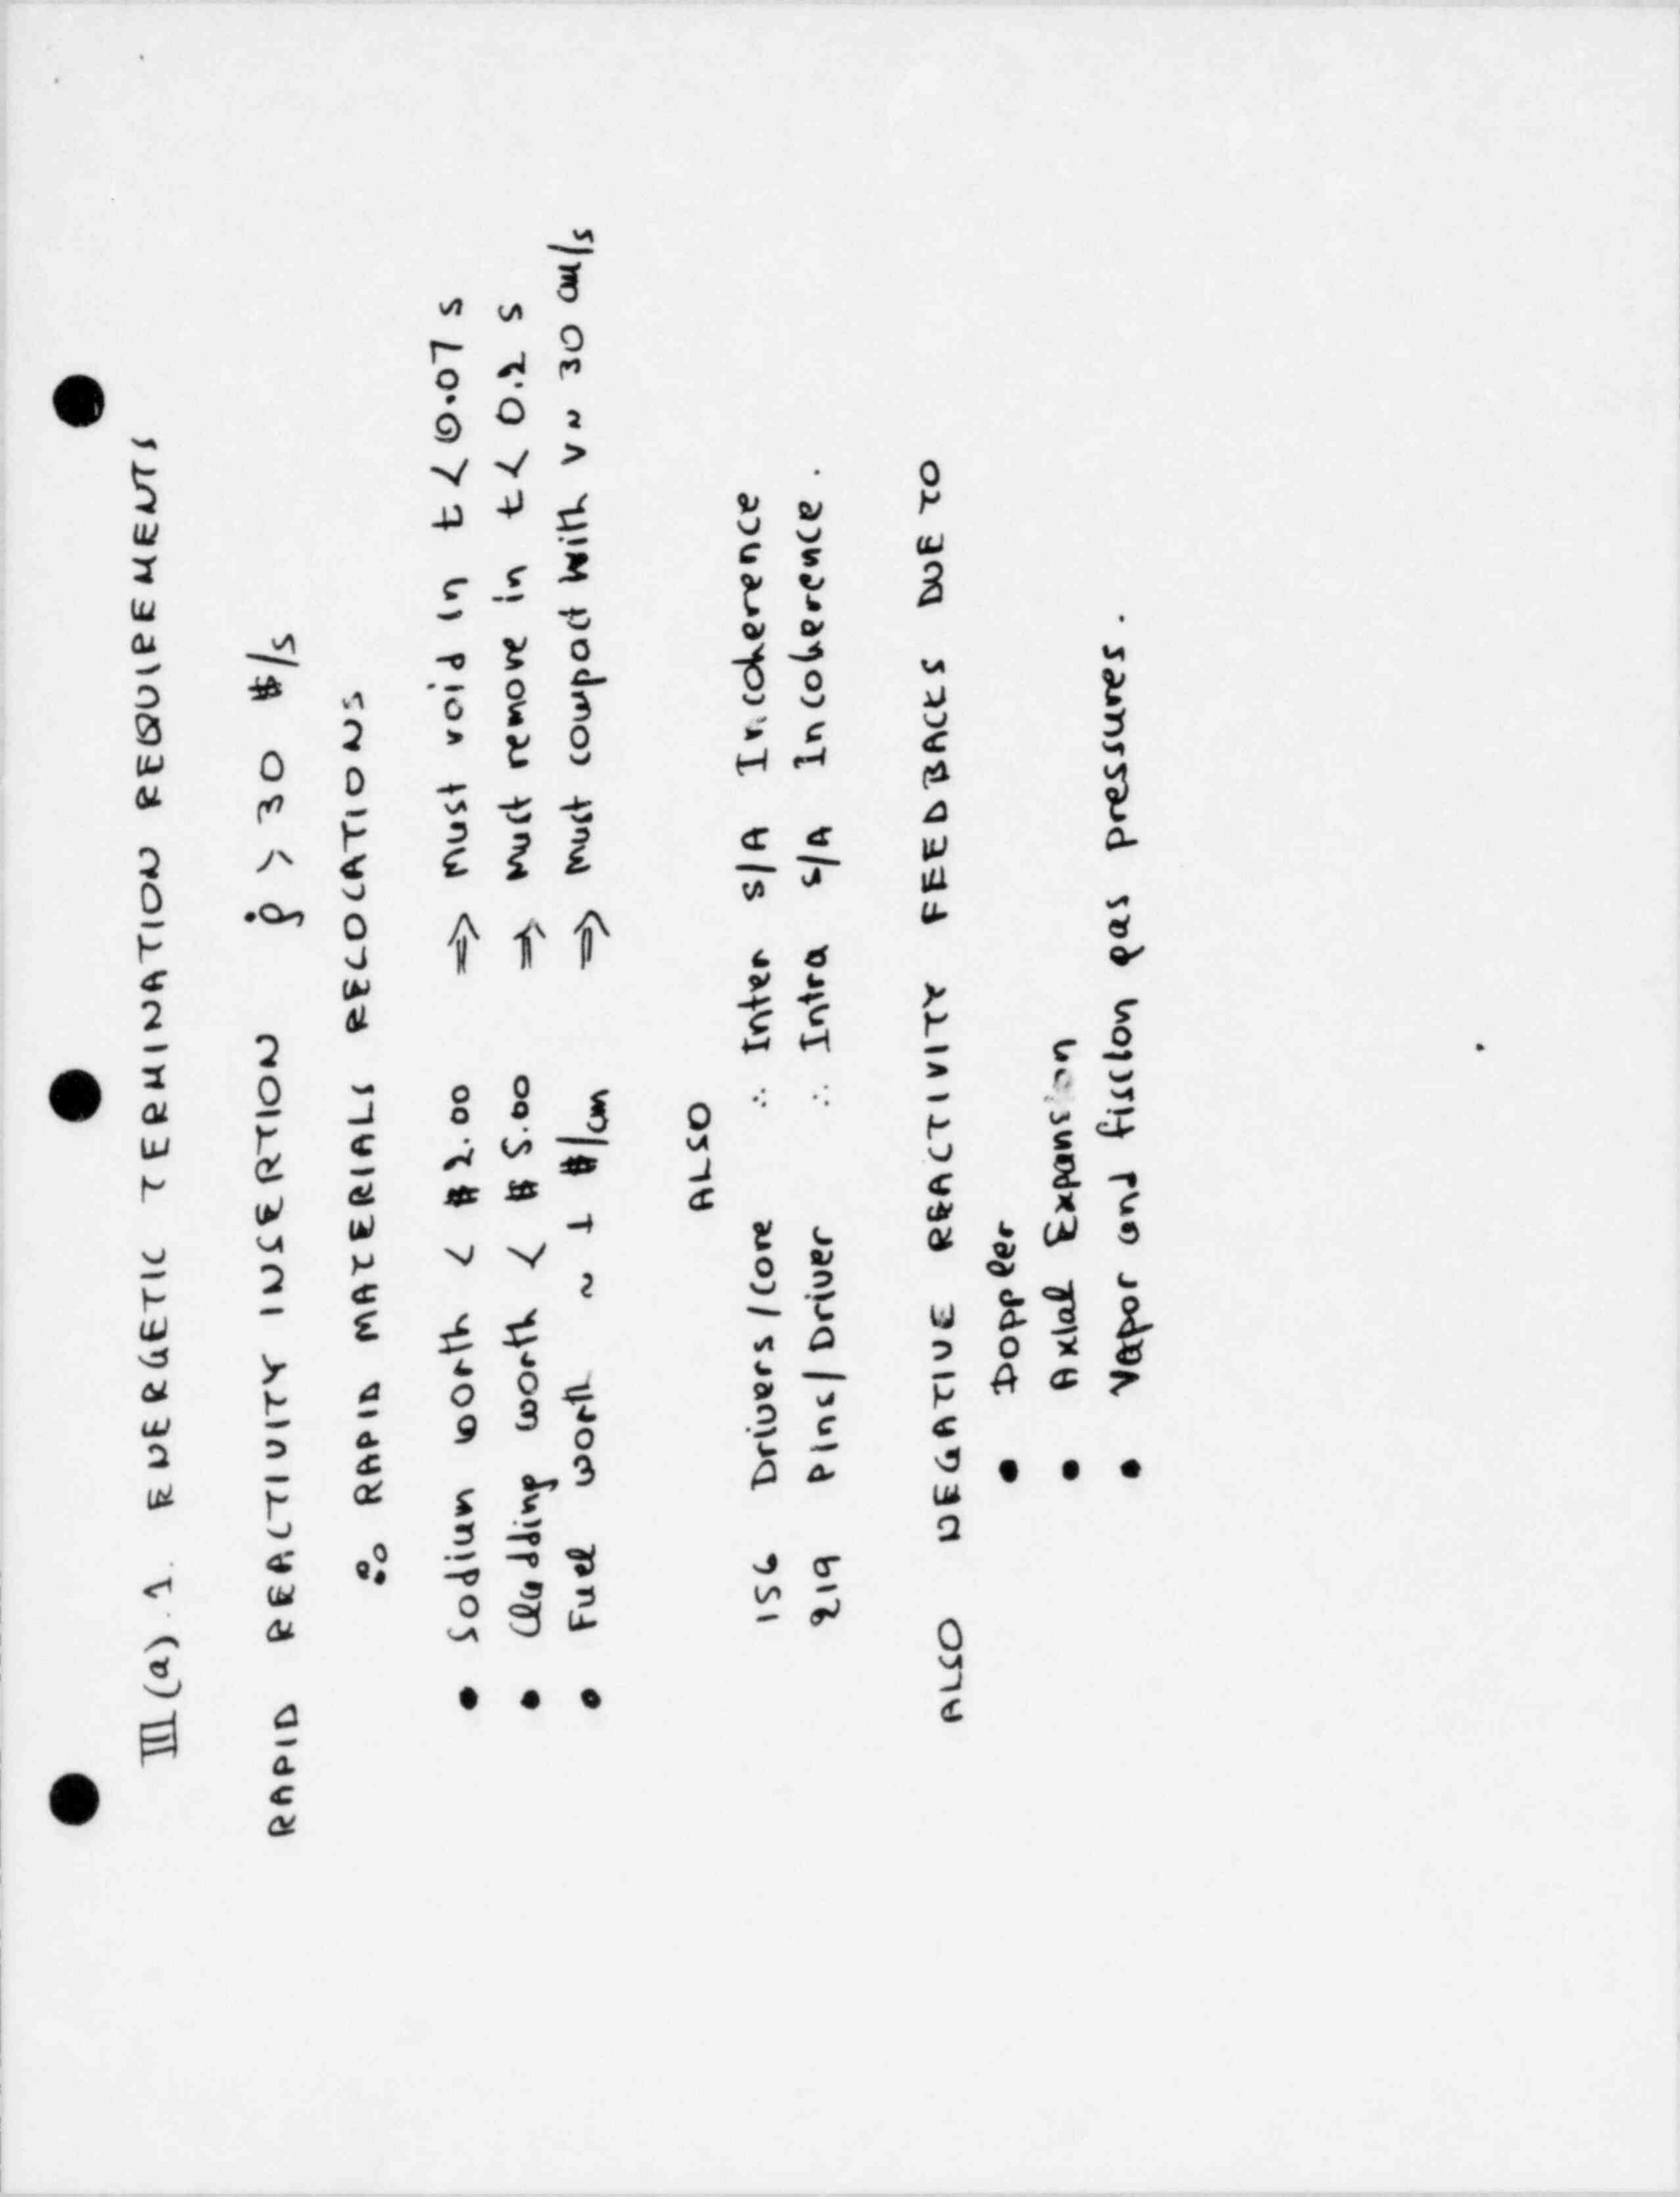 III(a).1. ENERGETIC TERMINATION REQUIREMENTS
RAPID REACTIVITY INSERTION ρ̇ > 30 $/s
∴ RAPID MATERIALS RELOCATIONS
• Sodium worth < $2.00 ⇒ Must void in t < 0.07 s
• Cladding worth < $5.00 ⇒ Must remove in t < 0.2 s
• Fuel worth ~ 1 $/cm ⇒ Must compact with v ~ 30 cm/s
ALSO
156 Drivers/Core ∴ Inter S/A Incoherence
219 Pins/Driver ∴ Intra S/A Incoherence.
ALSO NEGATIVE REACTIVITY FEEDBACKS DUE TO
• Doppler
• Axial Expansion
• Vapor and fission gas pressures.